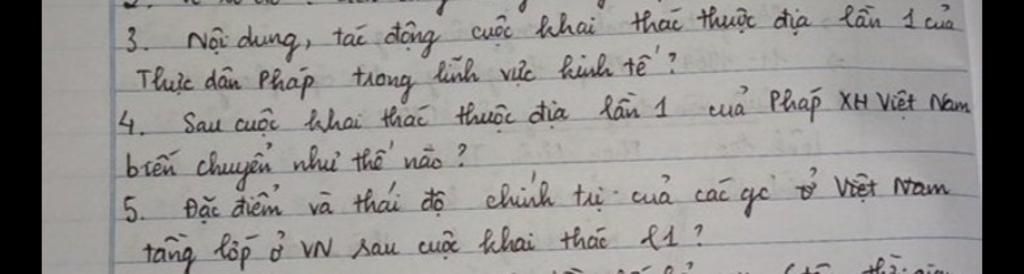 3. Nội dung, tác động cuộc khai thác thuộc địa lần 1 của
Thực dân Pháp trong lĩnh vực kinh tế?
4. Sau cuộc khai thác thuộc địa lần 1 của Pháp XH Việt Nam
biến chuyển như thế nào?
5. Đặc điểm và thái độ chính trị của các gc ở Việt Nam
tầng lớp ở VN sau cuộc khai thác l1?